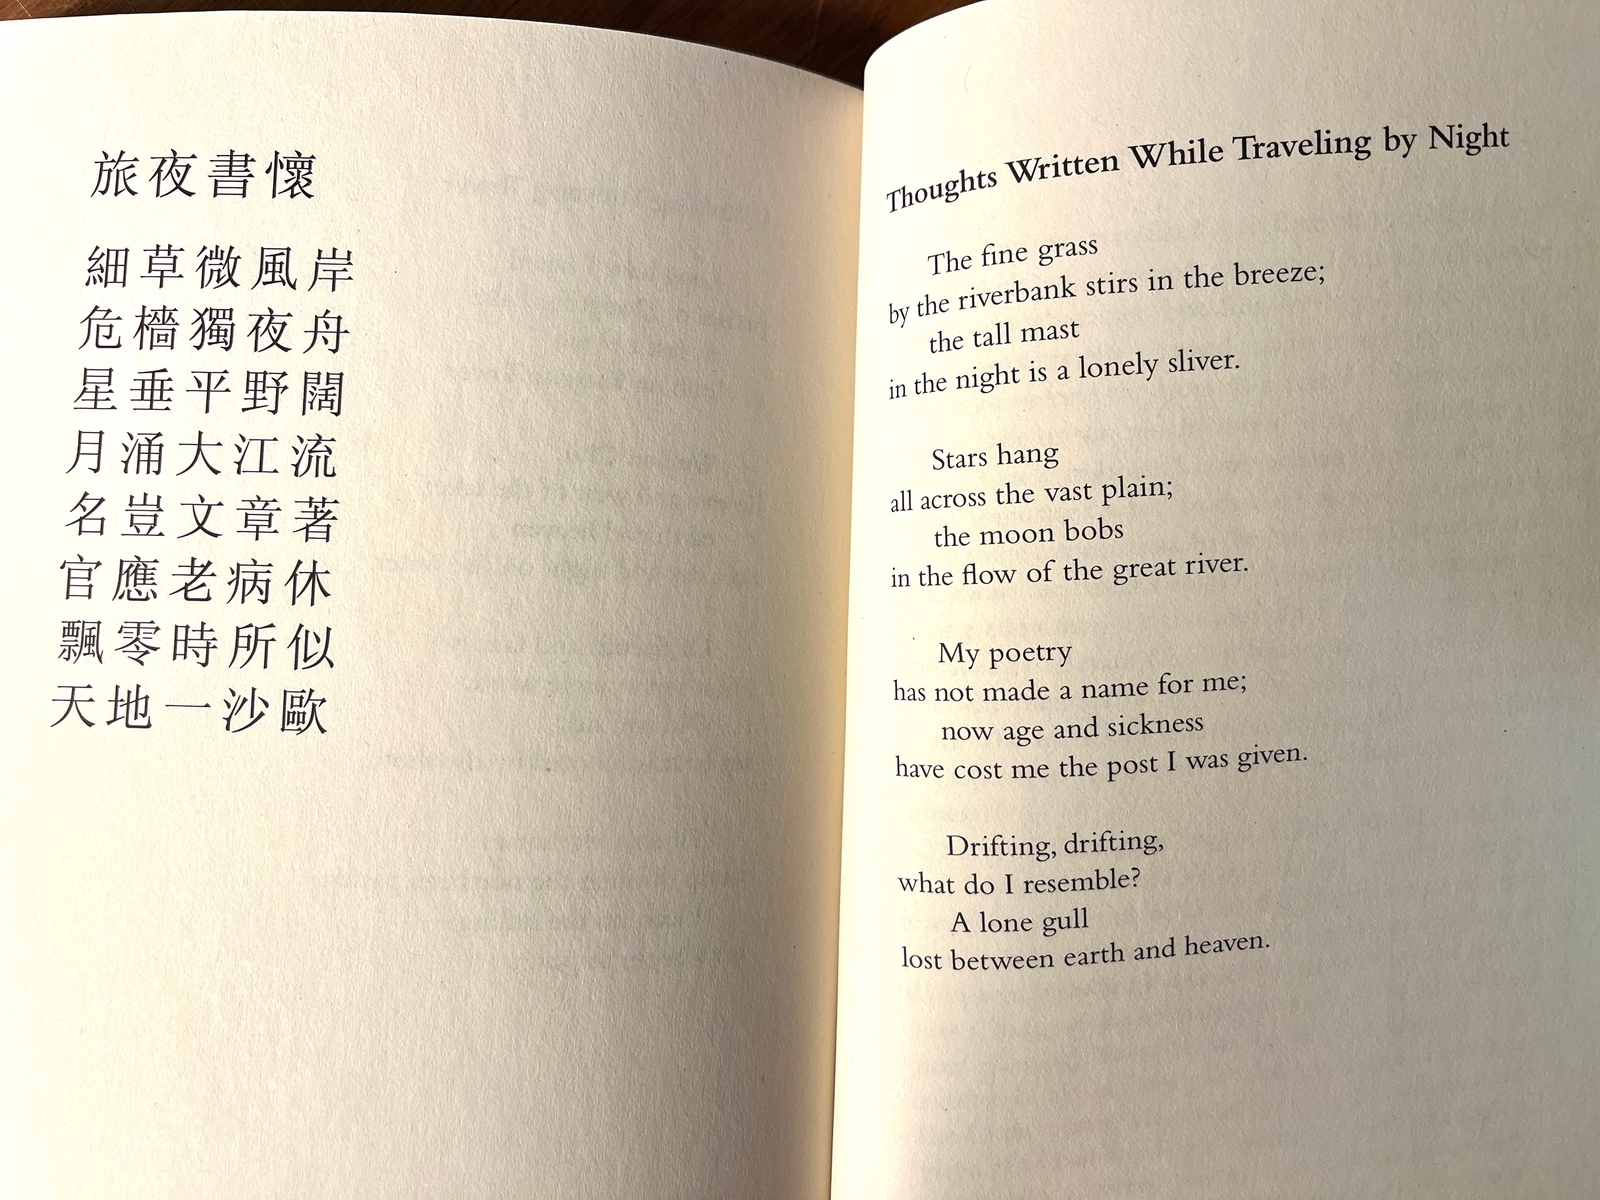 旅夜書懷
細草微風岸
危檣獨夜舟
星垂平野闊
月涌大江流
名豈文章著
官應老病休
飄零時所似
天地一沙歐
Thoughts Written While Traveling by Night
The fine grass
by the riverbank stirs in the breeze;
the tall mast
in the night is a lonely sliver.
Stars hang
all across the vast plain;
the moon bobs
in the flow of the great river.
My poetry
has not made a name for me;
now age and sickness
have cost me the post I was given.
Drifting, drifting,
what do I resemble?
A lone gull
lost between earth and heaven.